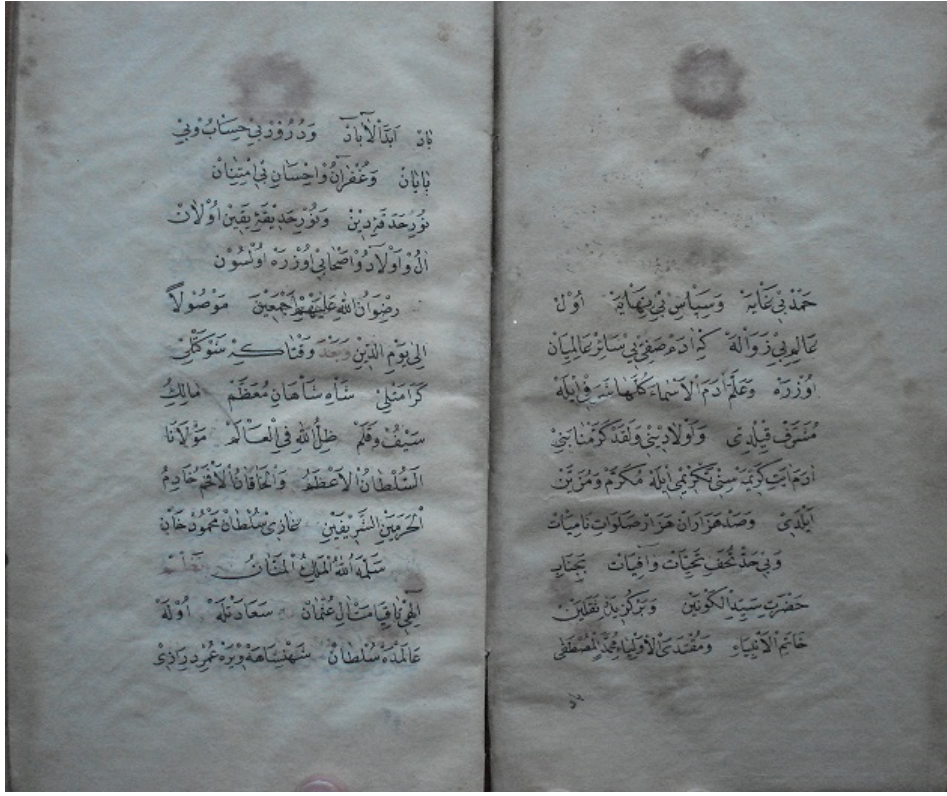 حَمْدِ بِي غَايَهْ وَسِپَاسِ بِي نِهَايَهْ اُوْلْ
عَالِمِ بِي زَوَالَهْ كِه اٰدَمِ صَفِيّ يِي سَائِرْ عَالَمِيَانْ
اُوْزَرَهْ وَعَلَّمَ اٰدَمَ الْاَسْمَاءَ كُلَّهَا شَرَفِي اِيلَهْ
مُشَرَّفْ قِيلْدِى وَاَوْلَادِينِي وَلَقَدْ كَرَّمْنَا بَنِي
اٰدَمَ اٰيَتِ كَرِيمَه سِنِي تَكْرِيمِي اِيلَهْ مُكَرَّمْ وَمُزَيَّنْ
اَيْلَدِى وَصَدْ هَزَارَانْ هَزَارْ صَلَوَاتِ نَامِيَاتْ
وَبِي حَدّ تُحَفِ تَحِيَّاتِ وَافِيَاتْ بَجَنَابِ
حَضْرَتِ سَيِّدِ الْكَوْنَيْنِ وَبَرْكُزِيدَهٔ ثَقَلَيْنْ
خَاتِمِ الْاَنْبِيَاءِ وَمُقْتَدَى الْاَوْلِيَاءِ مُحَمَّدِ الْمُصْطَفٰى
باد
بَادْ اَبَدَ الْاٰبَادْ وَدُرُودِ بِي حِسَابْ وَبِي
پَايَانْ وَغُفْرَانُ وَاِحْسَانِ بِي اِمْتِنَانْ
نُورِ حَدَقَۀ دِينْ وَنَوْرِ حَدِيقَۀ يَقِينْ اُولَانْ
اٰلُ وَاَوْلَادُ وَاَصْحَابِي اُوْزَرَهْ اُولْسُونْ
رِضْوَانُ اللهِ عَلَيْهِمْ اَجْمَعِينَ مَوْصُولاً
اِلٰى يَوْمِ الدِّينِ وَبَعْدَ وَقْتَاكِه شَوْكَتْلِي
كَرَامَتْلِي شَاهِ شَاهَانِ مُعَظَّمْ مَالِكِ
سَيْفُ وَقَلَمْ ظِلُّ اللهِ فِي الْعَالَمْ مَوْلَانَا
اَلسُّلْطَانُ الْاَعْظَمُ وَالْخَاقَانُ الْاَفْخَمُ خَادِمُ
الْحَرَمَيْنِ الشَّرِيفَيْنِ غَازِى سُلْطَانْ مَحْمُودْ خَانْ
سَلَّمَهُ اللهُ الْمَلِكُ الْمَنَّانُ
اِلٰهِي تَا قِيَامَتْ اٰلِ عُثْمَانْ سَعَادَتْلَهْ اُوْلَهْ
عَالَمْدَهْ سُلْطَانْ شَهَنْشَاهَهْ وِيرَهْ عُمْرِ دِرَازِى